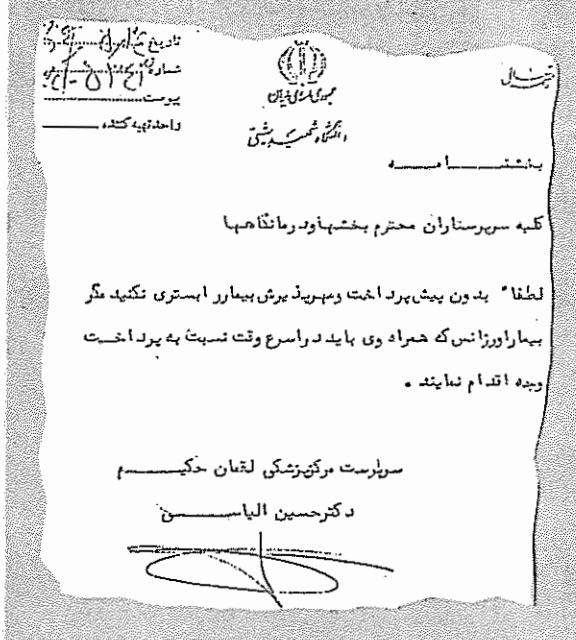 بسمه تعالی
تاریخ
شماره
پیوست
واحد تهیه کننده
جمهوری اسلامی ایران
دانشگاه شهید بهشتی
بخشنامه
کلیه سرپرستاران محترم بخشها و درمانگاهها
لطفا" بدون پیش پرداخت و مهر پذیرش بیمار را بستری نکنید مگر
بیمار اورژانس که همراه وی باید در اسرع وقت نسبت به پرداخت
وجه اقدام نمایند .
سرپرست مرکز پزشکی لقمان حکیم
دکتر حسین الیاسی